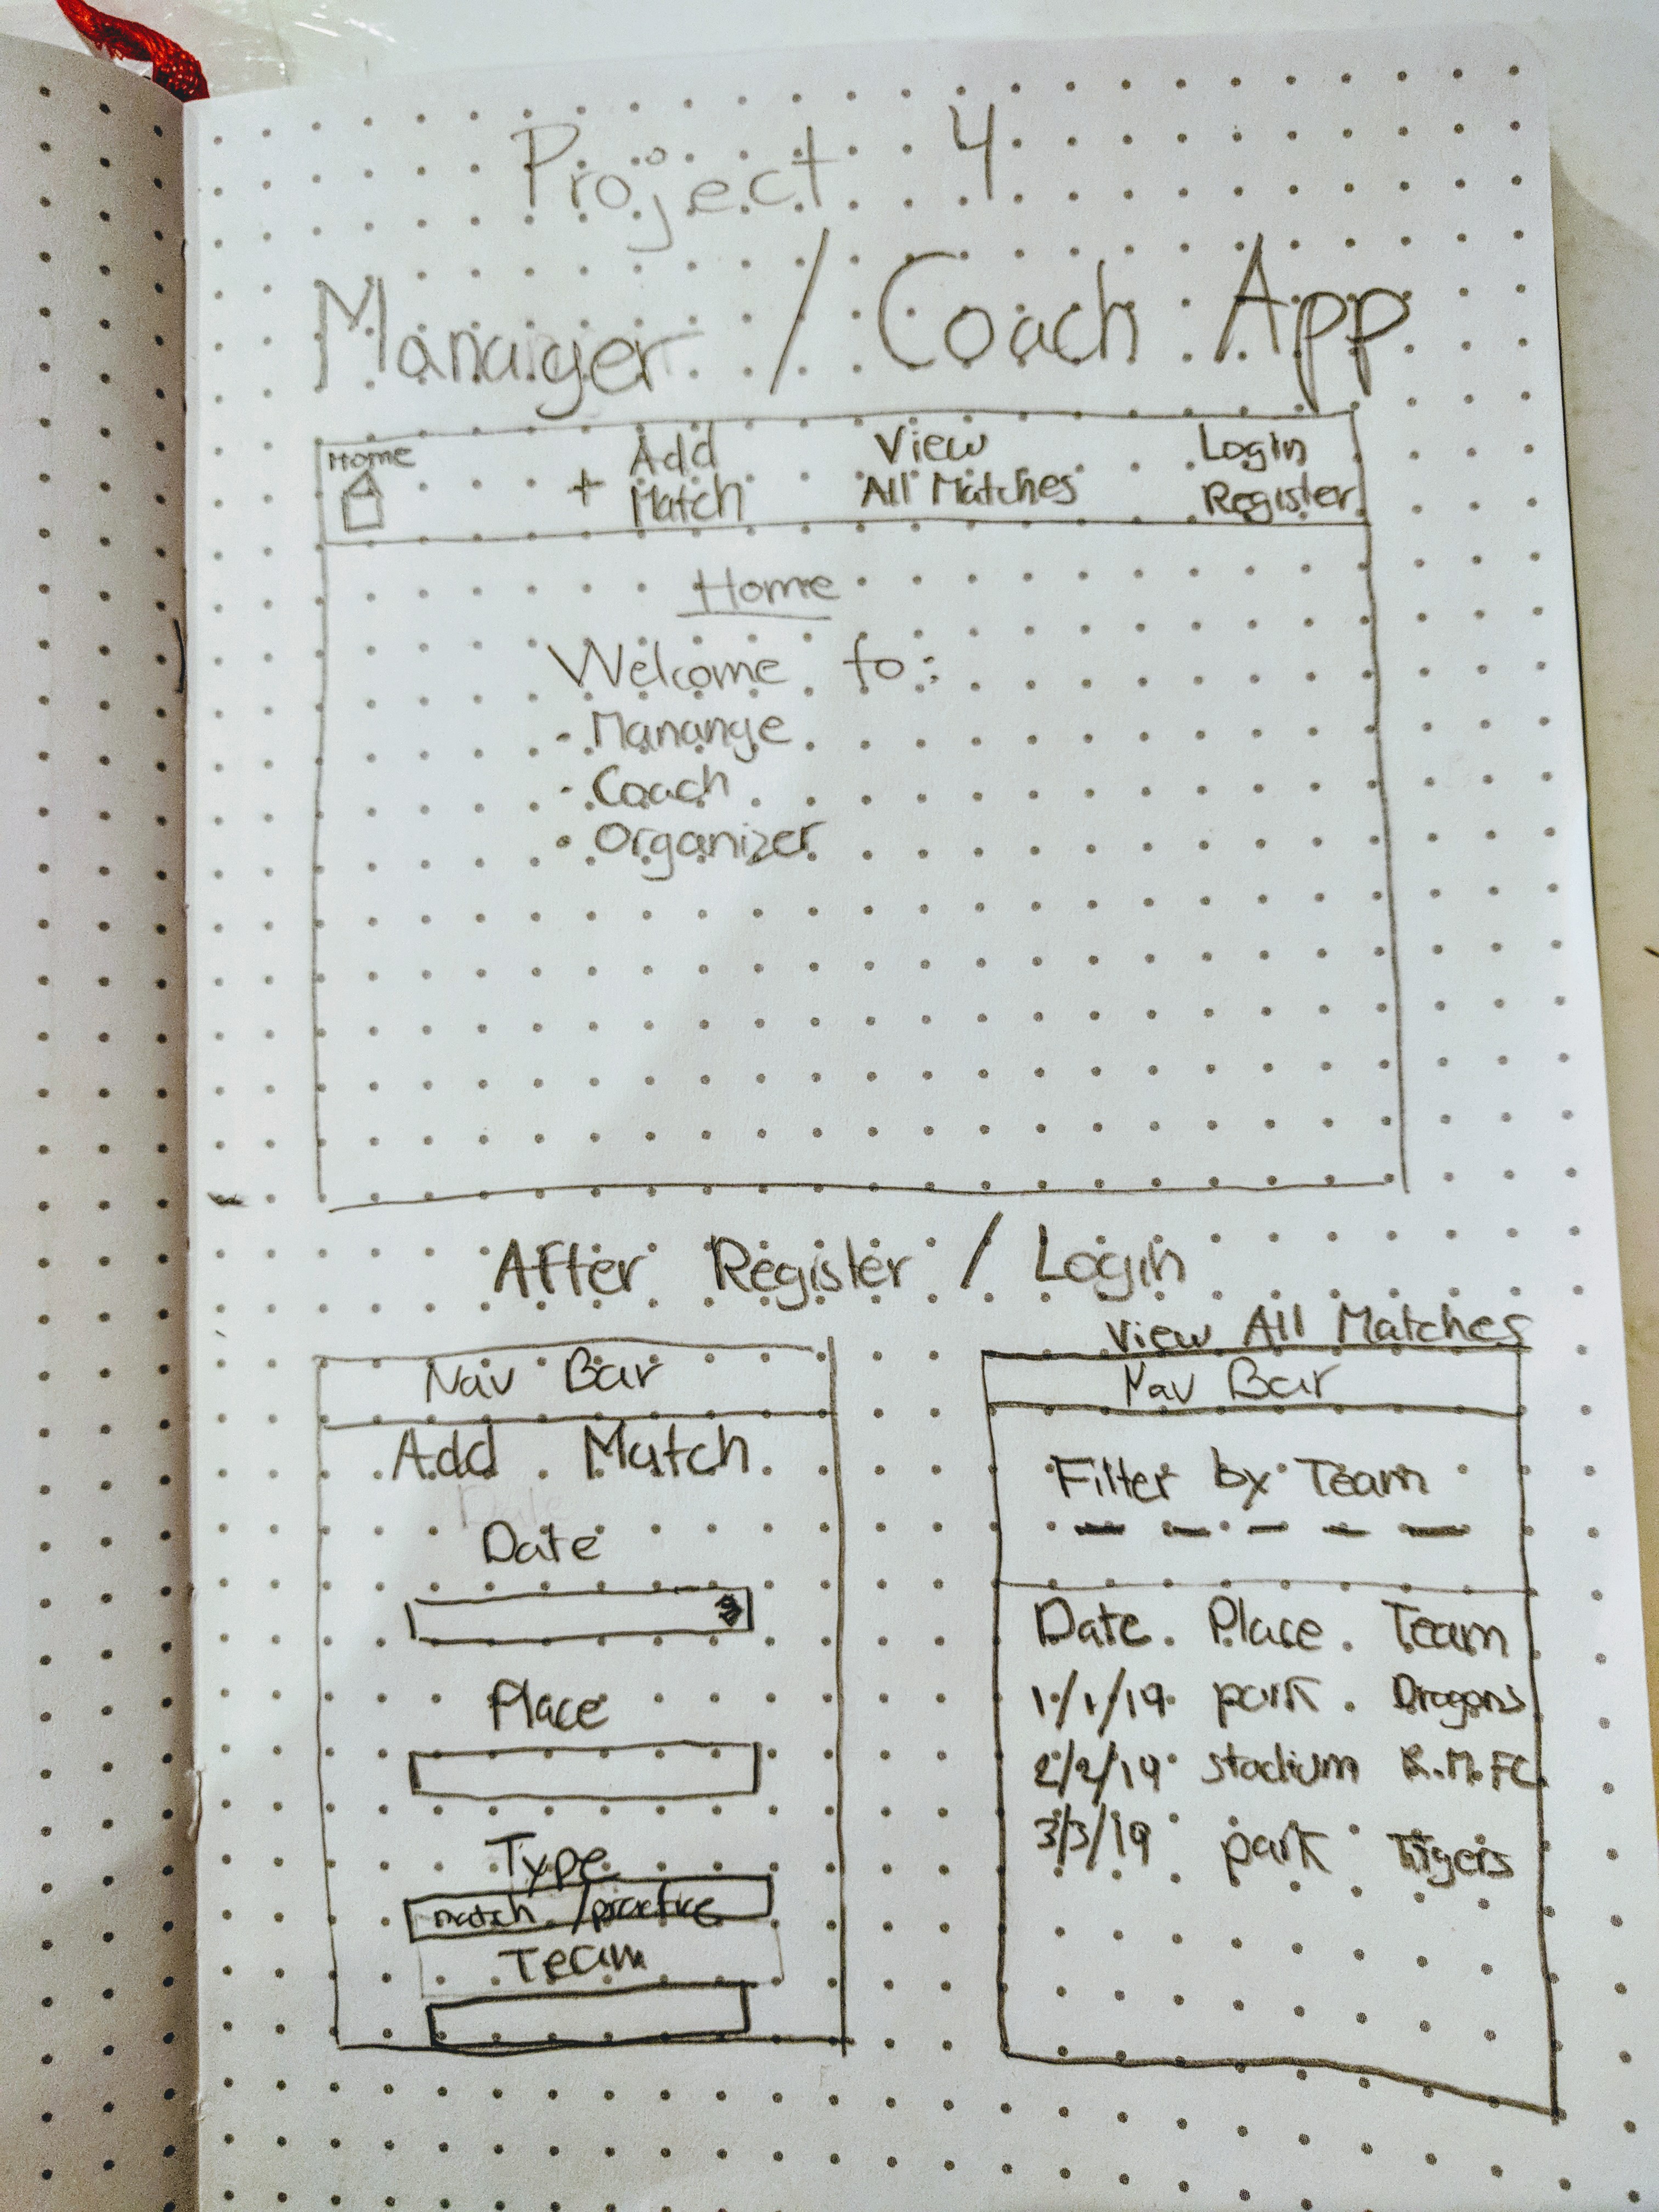 Project 4
Manager / Coach App
Home
+ Add Match
View All Matches
LogIn
Register
Home
Welcome to:
- Manange
- Coach
• Organizer
After Register / Login
Nav Bar
Add Match
Date
Date
Place
Type
match / practice
Team
View All Matches
Nav Bar
Filter by Team
Date Place Team
1/1/19 park Dragons
2/2/19 stadium R.M.FC
3/3/19 park Tigers